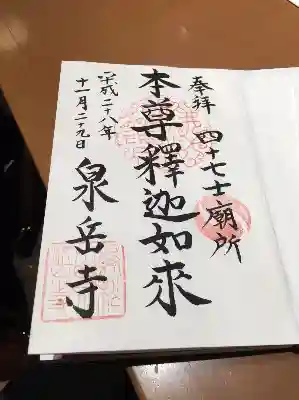 奉拝
四十七士廟所
本尊釋迦如來
平成二十八年
十一月二十九日
泉岳寺